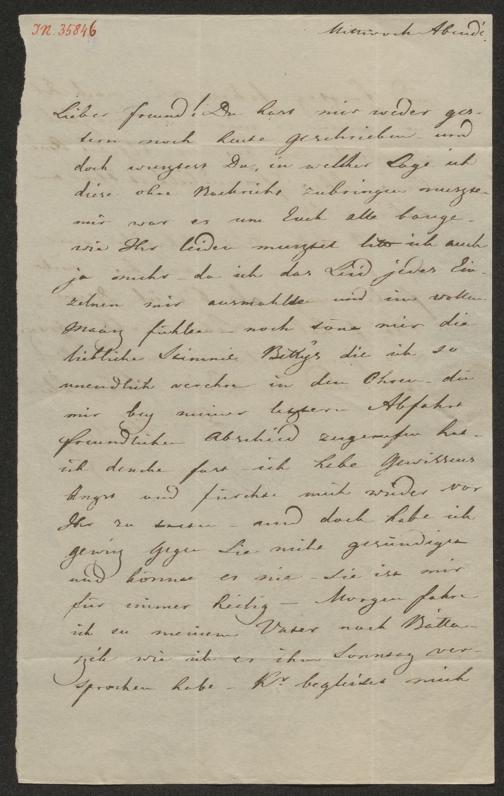 IN. 35846
Mittwoch Abends.
Lieber Freund! Du hast mir weder ges-
tern noch heute geschrieben und
doch wusstest Du, in welcher Lage ich
diese ohne Nachricht zubringen musste.
mir war es um Euch alle bange.
wie Ihr leiden musstet litt ich auch
ja mehr – da ich das Leid jedes Ein-
zelnen mir ausmahlte und im vollen
Maas fühlte – noch töne mir die
liebliche Stimme Bettys die ich so
unendlich verehre in den Ohren – die
mir bey meiner letzten Abfahrt
freundlichen Abschied zugerufen hat –
ich dencke fast – ich habe Gewissens
Angst und fürchte mich wieder vor
Ihr zu – und doch habe ich
gewis gegen Sie nicht gesündiget
und könnte es nie – Sie ist mir
für immer heilig – Morgen fahre
ich zu meinem Vater nach Batta-
szék wie ich es ihm Sonntag ver-
sprochen habe – Kr begleitet mich